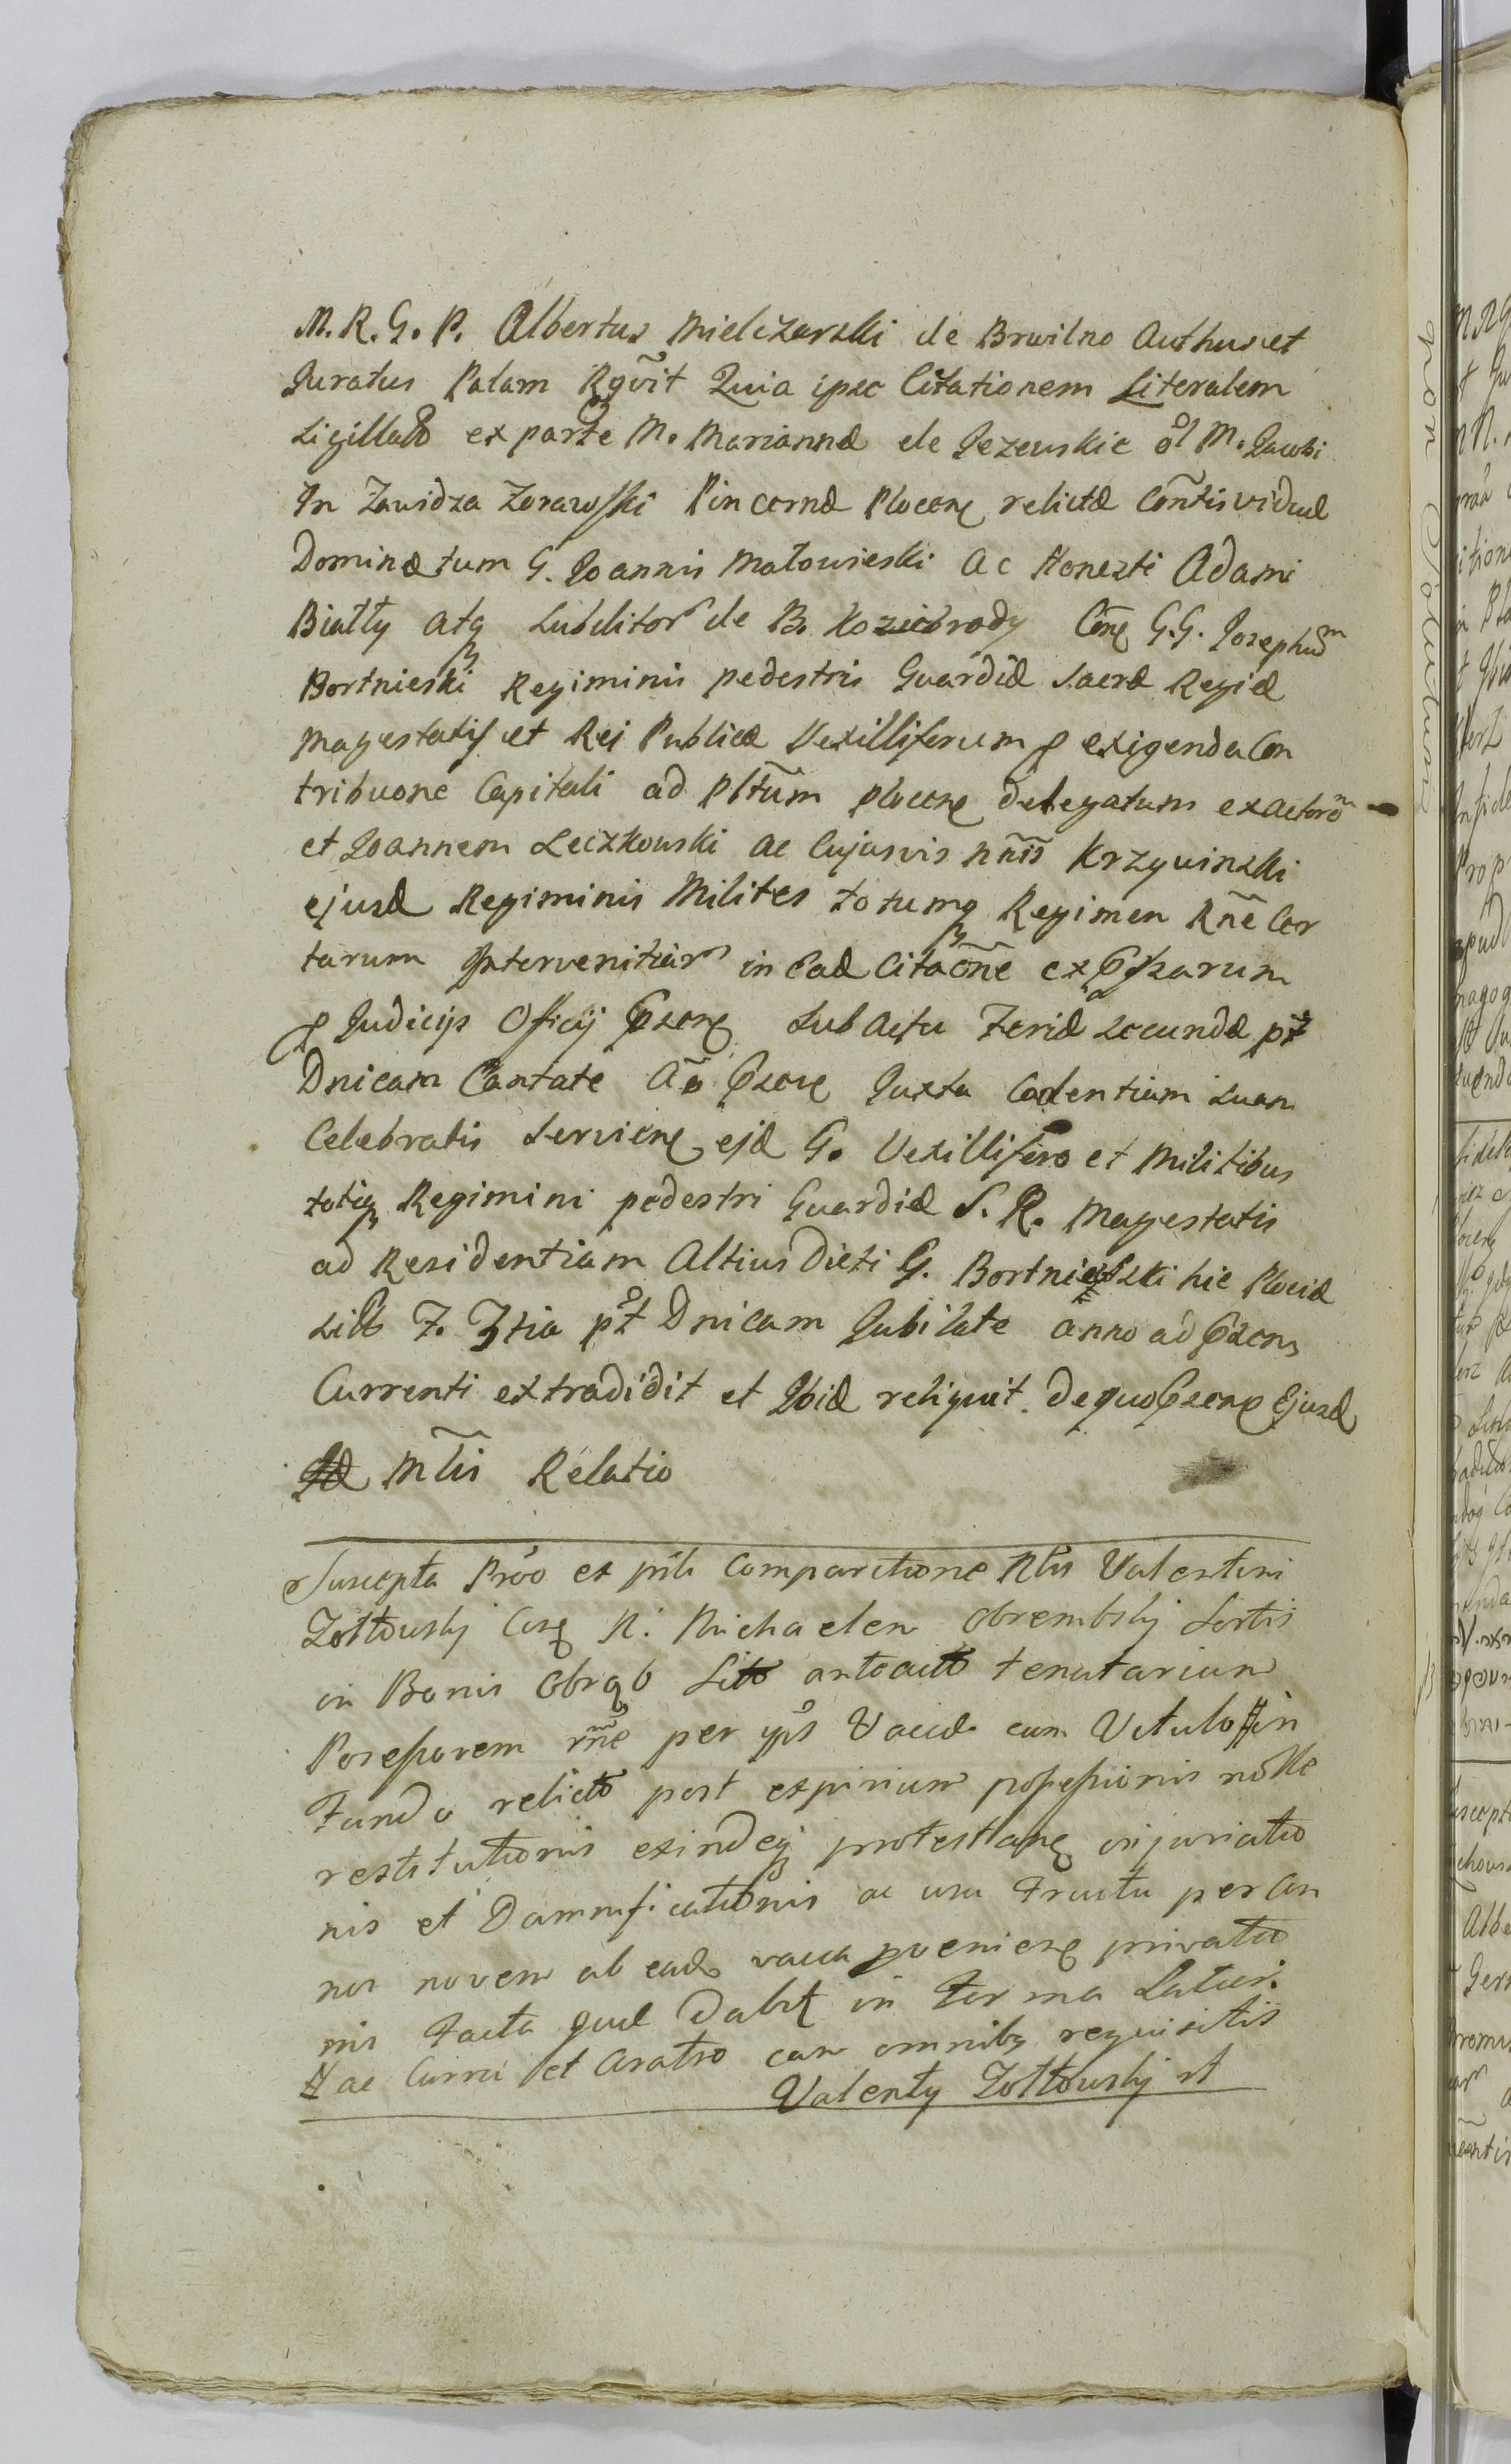 M. R. G. P. Albertus Mielczarski de Brwilno Authus et
Juratus Palam Rgõvit Quia ipse Citationem Literalem
Sigillatã ex parte M. Mariannæ de Jezewskie ol M. Jacobi
In Zawidza Zorawski Pincernæ Plocen relictæ Cõntis viduæ
Dominæ tum G. Joannis Matowieski ac Honesti Adami
Biatty atq Subditor de B. Koziebrody Cone G.G. Josephum
Bortnieski Regiminis pedestris Guardiæ Sacræ Regiæ
Mayestatis et Rei Publicæ Vexilliferum p exigenda Con
tribuone Capitali ad Pltũm plocene delegatum exactorem
et Joannem Leczkowski ac Cujusvis nñis Krzywinski
ejusd Regiminis Milites totumq Regimen Rñe Cer
tarum Interventiar in ead Citaõne expssarum
p Judicijs Officij Psens Sub actu Feriæ secundæ pt
Dnicam Cantate Aõ Psene Juxta Cadentiam suam
Celebratis Serviene ejd G. Vexillifero et Militibus
totiq Regimini pedestri Guardiæ S. R. Mayestatis
ad Residentiam Altius Dicti G. Bortnieski hic Plociæ
sitã F. 3tia pt Dnicam Jubilate anno ad Psens
Currenti extradidit et Ibid reliquit. De quo Psens Ejusd
Mlis Relatio
Suscepta Prõo ex pñti Comparitione Nlis Valentini
Zottowskj Cone N. Michaelem Obrembskj Sortis
in Bonis Obrąb Sitæ anteactæ tenutarium
Possessorem rñe per ips Vaccæ cum Vitulo # in
Fundo relictæ post expirium possessionis nolle
restitutionis exindeq protestlane injuriatio
nis et Damnificationis ac usu Fructu per An
nos novem ab ead vacca proveniene privatio
nis Facta quæ Dabit in Forma Latiori.
# ac Curru et Aratro cum omnibq requisitis
Valenty Zottowskj st